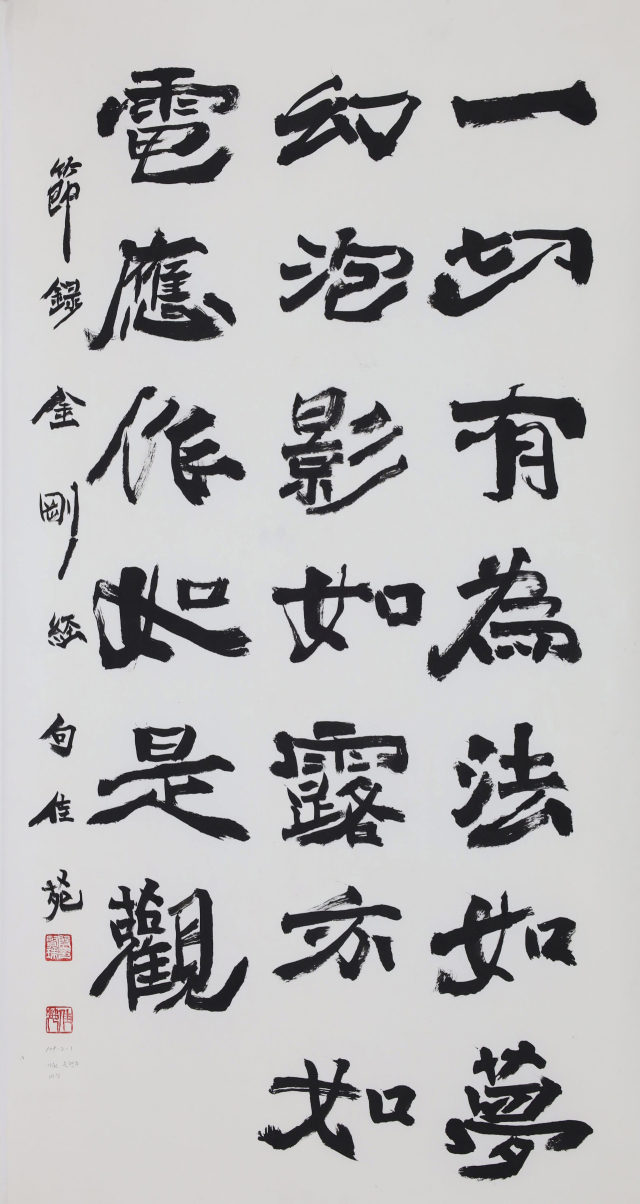 一切有為法如夢
幻泡影如露亦如
電應作如是觀
節錄金剛經句佳苑